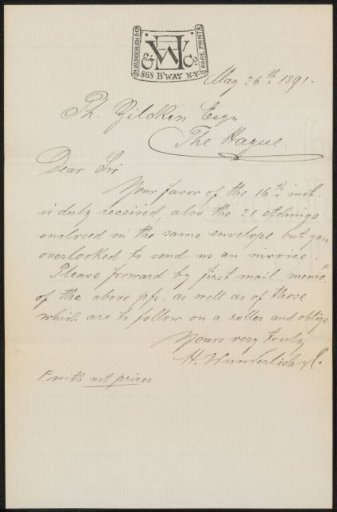 H. WUNDERLICH & Co
W & Co
868 B'WAY N-Y
RARE PRINTS
May 26th. 1891.
Ph. Zilcken Esqr
The Hague.
Dear Sir
Your favor of the 16th inst.
is duly received, also the 21 etchings
enclosed in the same envelope but you
overlooked to send us an invoice.
Please forward by first mail memo
of the above pfs. as well as of those
which are to follow on a roller and oblige
Yours very truly
H. Wunderlich & Co.
with net prices